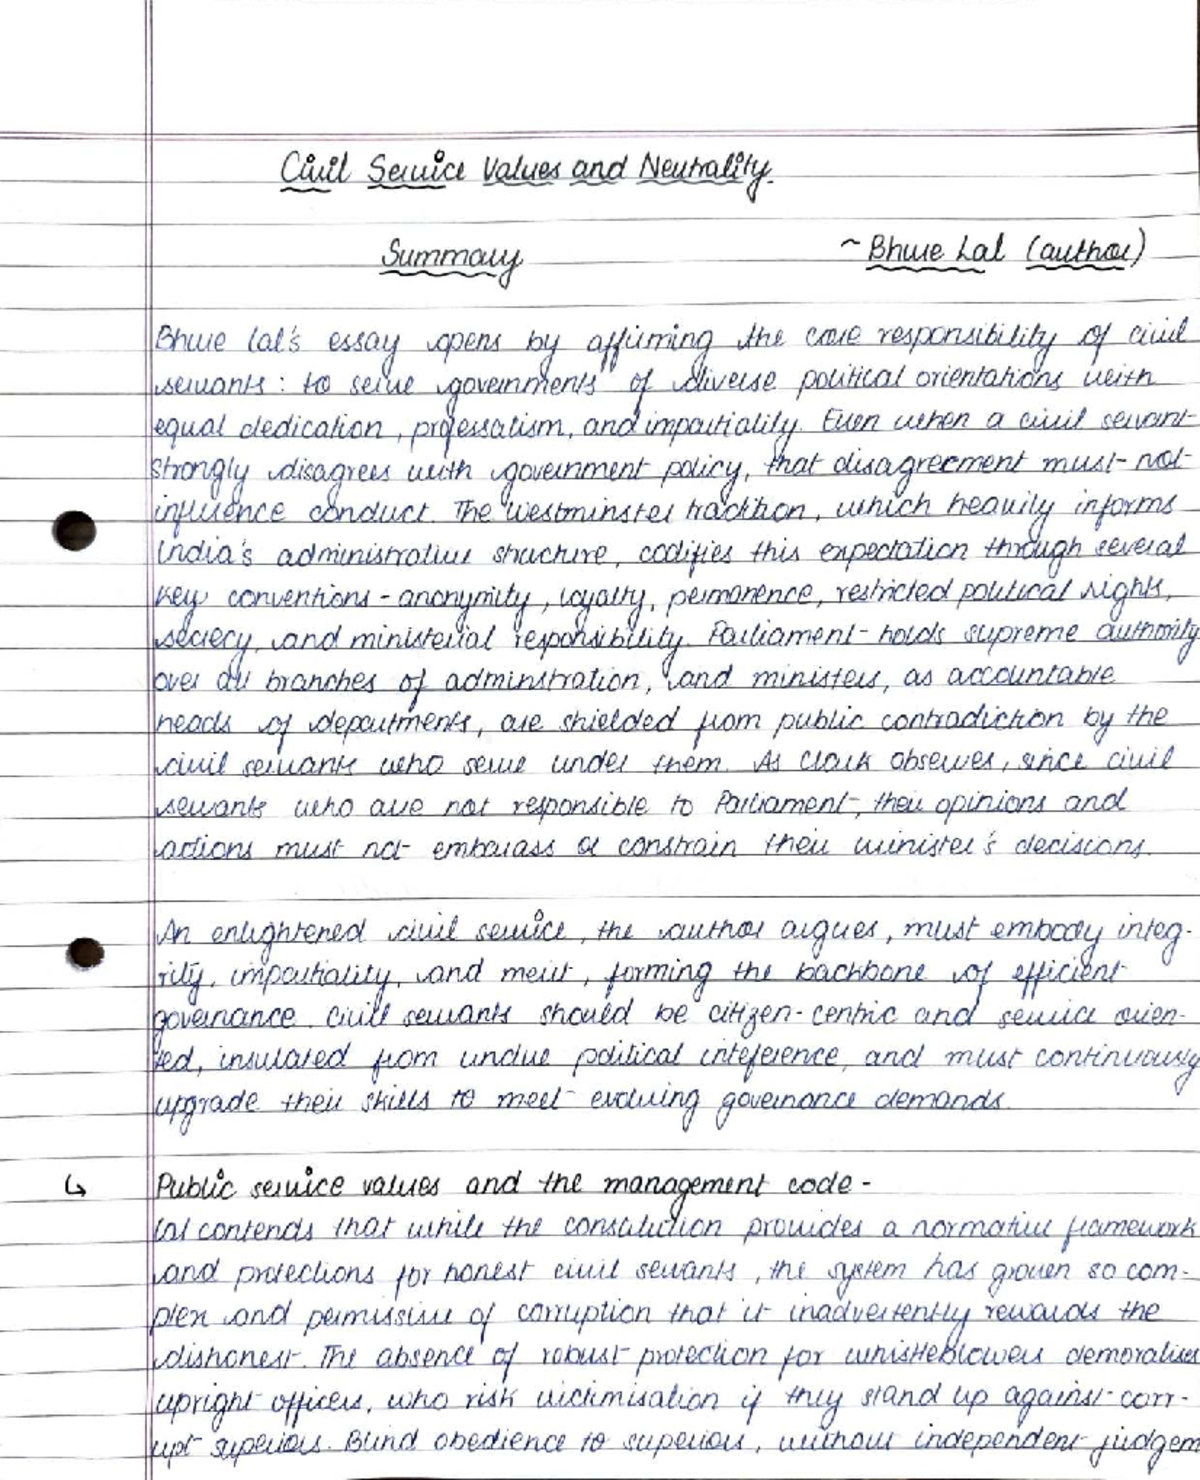 Civil Service Values and Neutrality.
Summary
~ Bhure Lal (author)
Bhure Lal's essay opens by affirming the core responsibility of civil
servants : to serve governments of diverse political orientations with
equal dedication, professatism, and impartiality. Even when a civil servant
strongly disagrees with government policy, that disagreement must not
influence conduct. The Westminster tradition, which heavily informs
India's administrative structure, codifies this expectation through several
key conventions - anonymity, loyalty, permanence, restricted political rights,
secrecy, and ministerial responsibility. Parliament holds supreme authority
over all branches of adminstration, and ministers, as accountable
heads of departments, are shielded from public contradiction by the
civil servants who serve under them. As Clark observes, since civil
servants who are not responsible to Parliament, their opinions and
actions must not embarass or constrain their minister's decisions.
An enlightened civil service, the author argues, must embody integ-
rity, impartiality, and merit, forming the backbone of efficient
governance. Civil servants should be citizen-centric and service orien-
ted, insulated from undue political inteference, and must continuously
upgrade their skills to meet evolving governance demands.
↳ Public service values and the management code -
Lal contends that while the constitution provides a normative framework
and protections for honest civil servants, the system has grown so com-
plex and permissive of corruption that it inadvertently rewards the
dishonest. The absence of robust protection for whistleblowers demoralises
upright officers, who risk victimisation if they stand up against corr-
upt superiors. Blind obedience to superiors, without independent judgem